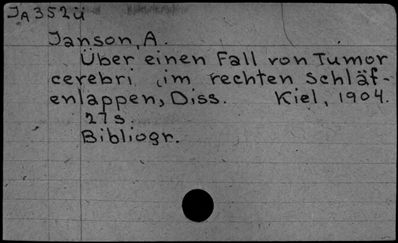 JA352ü
Janson, A.
Über einen Fall von Tumor
cerebri im rechten Schläf-
enlappen, Diss. Kiel, 1904.
27s.
Bibliogr.